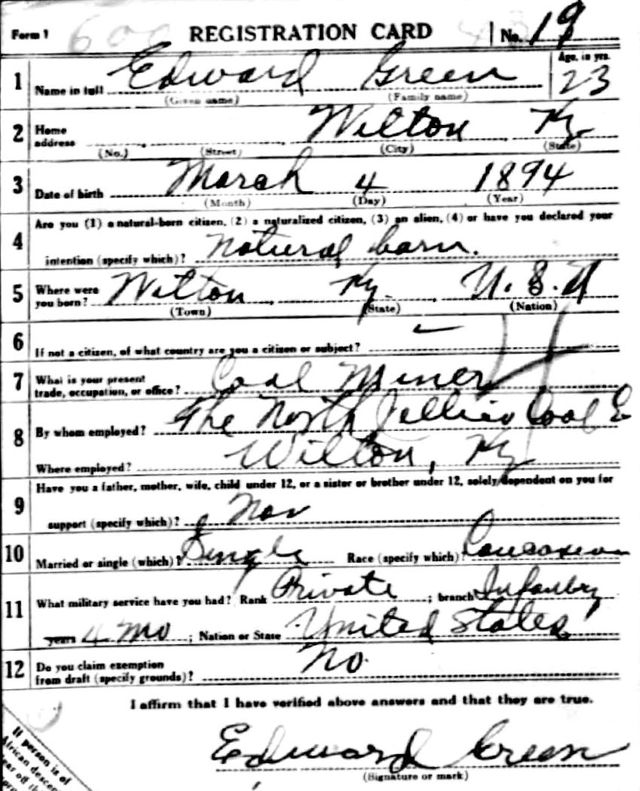 Form 1 600 REGISTRATION CARD No. 19
1 Name in full Edward Green Age, in yrs. 23
(Given name) (Family name)
2 Home address Wilton Ky
(No.) (Street) (City) (State)
3 Date of birth March 4 1894
(Month) (Day) (Year)
Are you (1) a natural-born citizen, (2) a naturalized citizen, (3) an alien, (4) or have you declared your
4 intention (specify which)? Natural born.
5 Where were you born? Wilton, Ky., U.S.A
(Town) (State) (Nation)
6 If not a citizen, of what country are you a citizen or subject? –
7 What is your present trade, occupation, or office? Coal Miner
8 By whom employed? The North Jellico Coal C
Where employed? Wilton, Ky
Have you a father, mother, wife, child under 12, or a sister or brother under 12, solely dependent on you for
9 support (specify which)? Non
10 Married or single (which)? Single Race (specify which)? Caucasian
11 What military service have you had? Rank Private ; branch Infantry
years 4 mo ; Nation or State United States
12 Do you claim exemption from draft (specify grounds)? No.
I affirm that I have verified above answers and that they are true.
Edward Green
(Signature or mark)
If person is of
African desce
ear off th